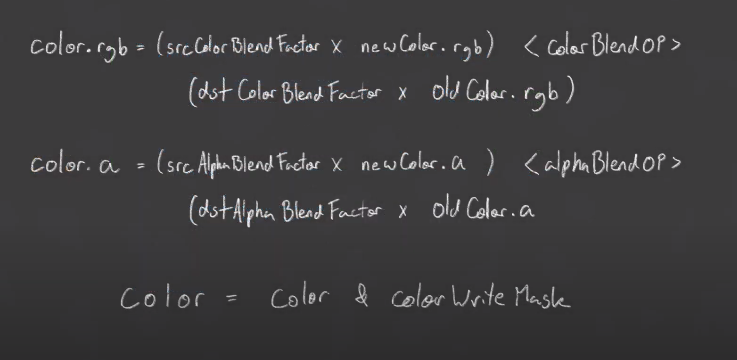 color.rgb = (srcColorBlendFactor x newColor.rgb) <colorBlendOP>
(dstColorBlendFactor x oldColor.rgb)
color.a = (srcAlphaBlendFactor x newColor.a ) <alphaBlendOP>
(dstAlphaBlendFactor x oldColor.a
color = color & colorWriteMask